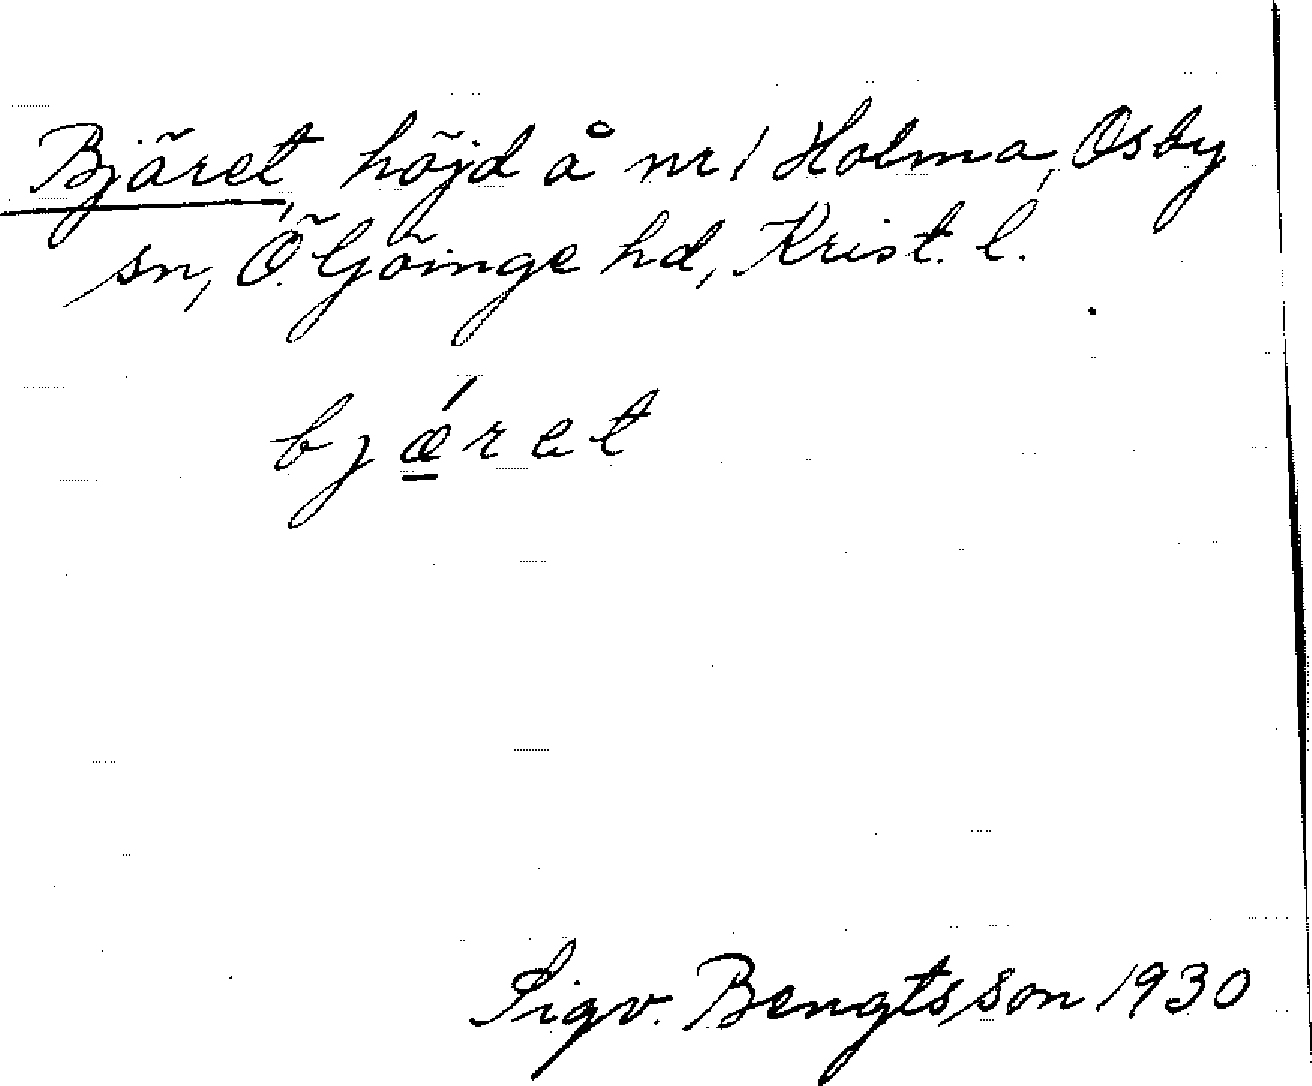 Bjäret, höjd å nr 1 Holma, Osby
sn, Ö. Göinge hd, Krist. l.
bjǽret
Sigv. Bengtsson 1930